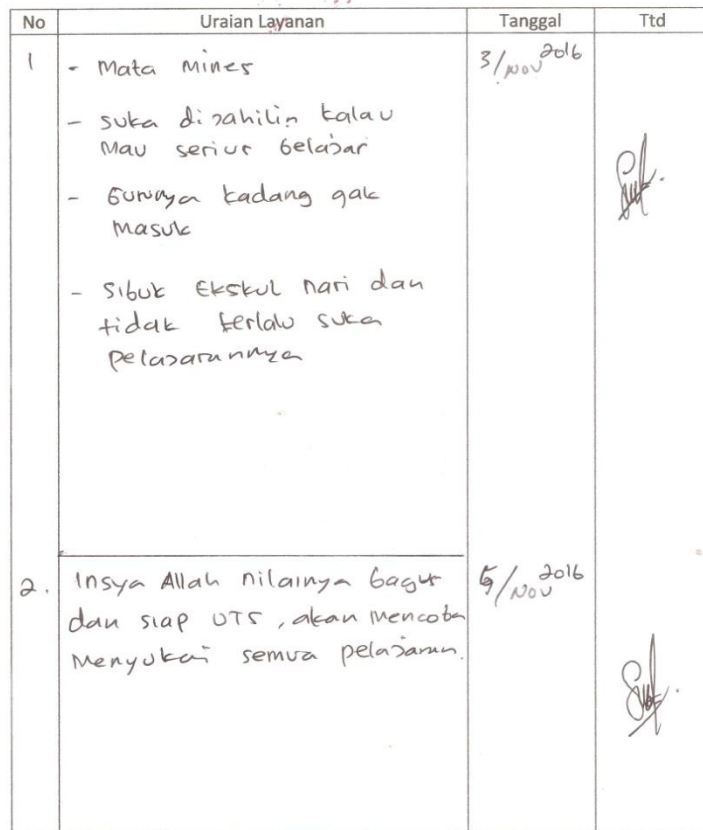 No Uraian Layanan Tanggal Ttd
1 - Mata mines 3/Nov 2016
- suka dijahilin kalau
Mau serius belajar
- Gurunya kadang gak
Masuk
- Sibuk Ekskul nari dan
tidak terlalu suka
Pelajarannya
2. Insya Allah nilainya bagus /Nov 2016
dan siap UTS, akan mencoba
Menyukai semua pelajaran.